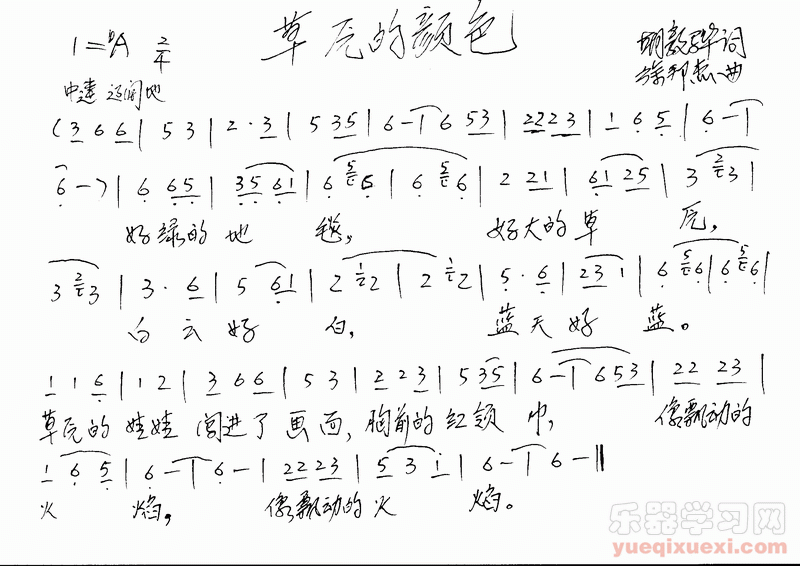 草原的颜色
1=♭A 2/4
胡敦骅词
徐邦杰曲
中速 辽阔地
(3 6 6 | 5 3 | 2 · 3 | 5 35 | 6 - | 6 53 | 22 23 | 1 6 5 | 6 - |
6 -) | 6 65 | 35 61 | 6 6 | 6 6 | 2 21 | 61 25 | 3 3 |
好绿的地 毯, 好大的草 原,
3 3 | 3 · 6 | 5 61 | 2 2 | 2 2 | 5 · 6 | 23 1 | 6 6 | 6 6 |
白云好 白, 蓝天好 蓝。
1 1 6 | 1 2 | 3 6 6 | 5 3 | 2 2 3 | 5 35 | 6 - | 6 53 | 22 23 |
草原的娃娃 闯进了画面, 胸前的红领 巾, 像飘动的
1 6 5 | 6 - | 6 - | 22 23 | 5 3 1 | 6 - | 6 - ‖
火 焰, 像飘动的火 焰。
乐器学习网
yueqixuexi.com